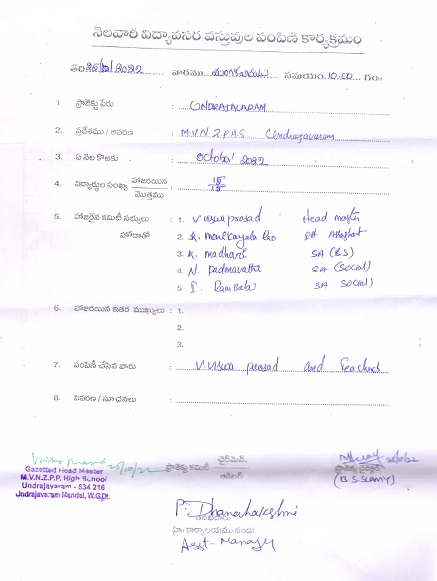 నెలవారీ విద్యావసర వస్తువుల పంపిణీ కార్యక్రమం
తేది 25/10/2022 వారము మంగళవారం సమయం 10.00 గం
1. ప్రాజెక్టు పేరు : UNDRAJAVARAM
2. ప్రదేశము / ఆవరణ : M.V.N Z.P.H.S.
3. ఏ నెల కొఱకు : October 2022
4. విద్యార్థుల సంఖ్య హాజరయిన / మొత్తము : 15/15
5. హాజరైన కమిటీ సభ్యులు : 1. V. Usha prasad Head master
హోదాతో 2. K. Rao PH
3. K. madhavi SA (B.S)
4. N. Padmavathi SA (Social)
5. P. Rambabu SA Social)
6. హాజరయిన ఇతర ముఖ్యులు : 1.
2.
3.
7. పంపిణీ చేసిన వారు : V Usha prasad and Teachers
8. వివరణ / సూచనలు :
25/10/22
Gazetted Head Master
M.V.N.Z.P.P. High School
Undrajavaram - 534 216
Undrajavaram Mandal, W.G.Dt.
ప్రాజెక్టు కమిటీ చైర్మెన్.
ప్రాజెక్టు డైరెక్టర్
(B.S.SAMY)
P. Dhanalakshmi
హెం కార్యాలయము నందు
Asst-Manager